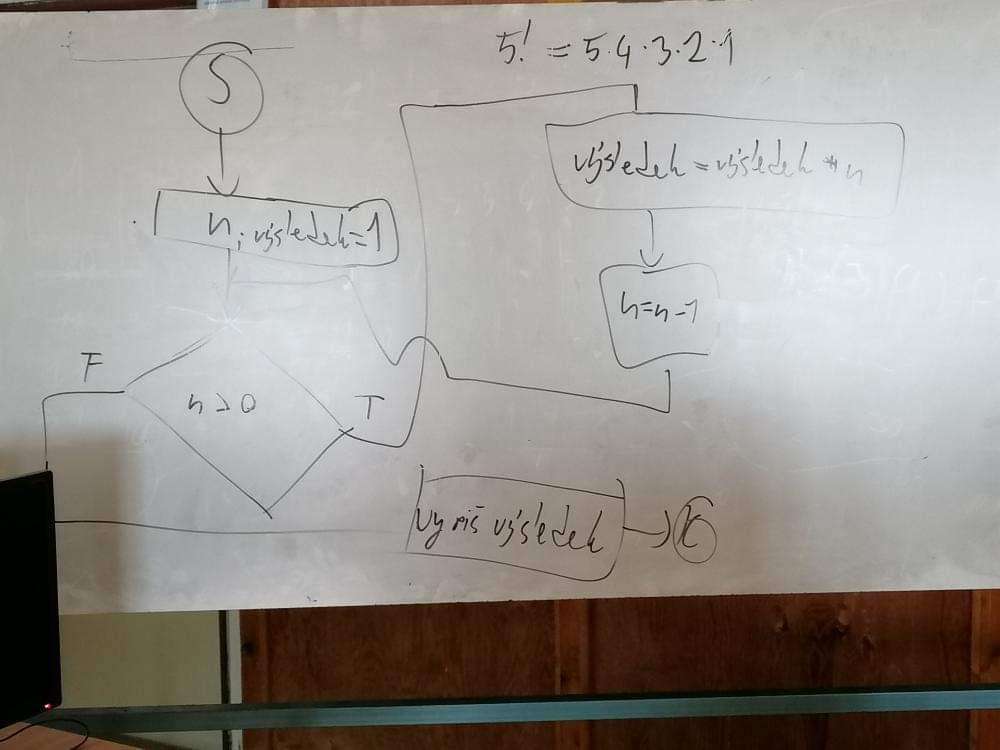 5! = 5·4·3·2·1
S
n; výsledek=1
F
n > 0
T
výsledek = výsledek * n
n=n-1
vypiš výsledek
K